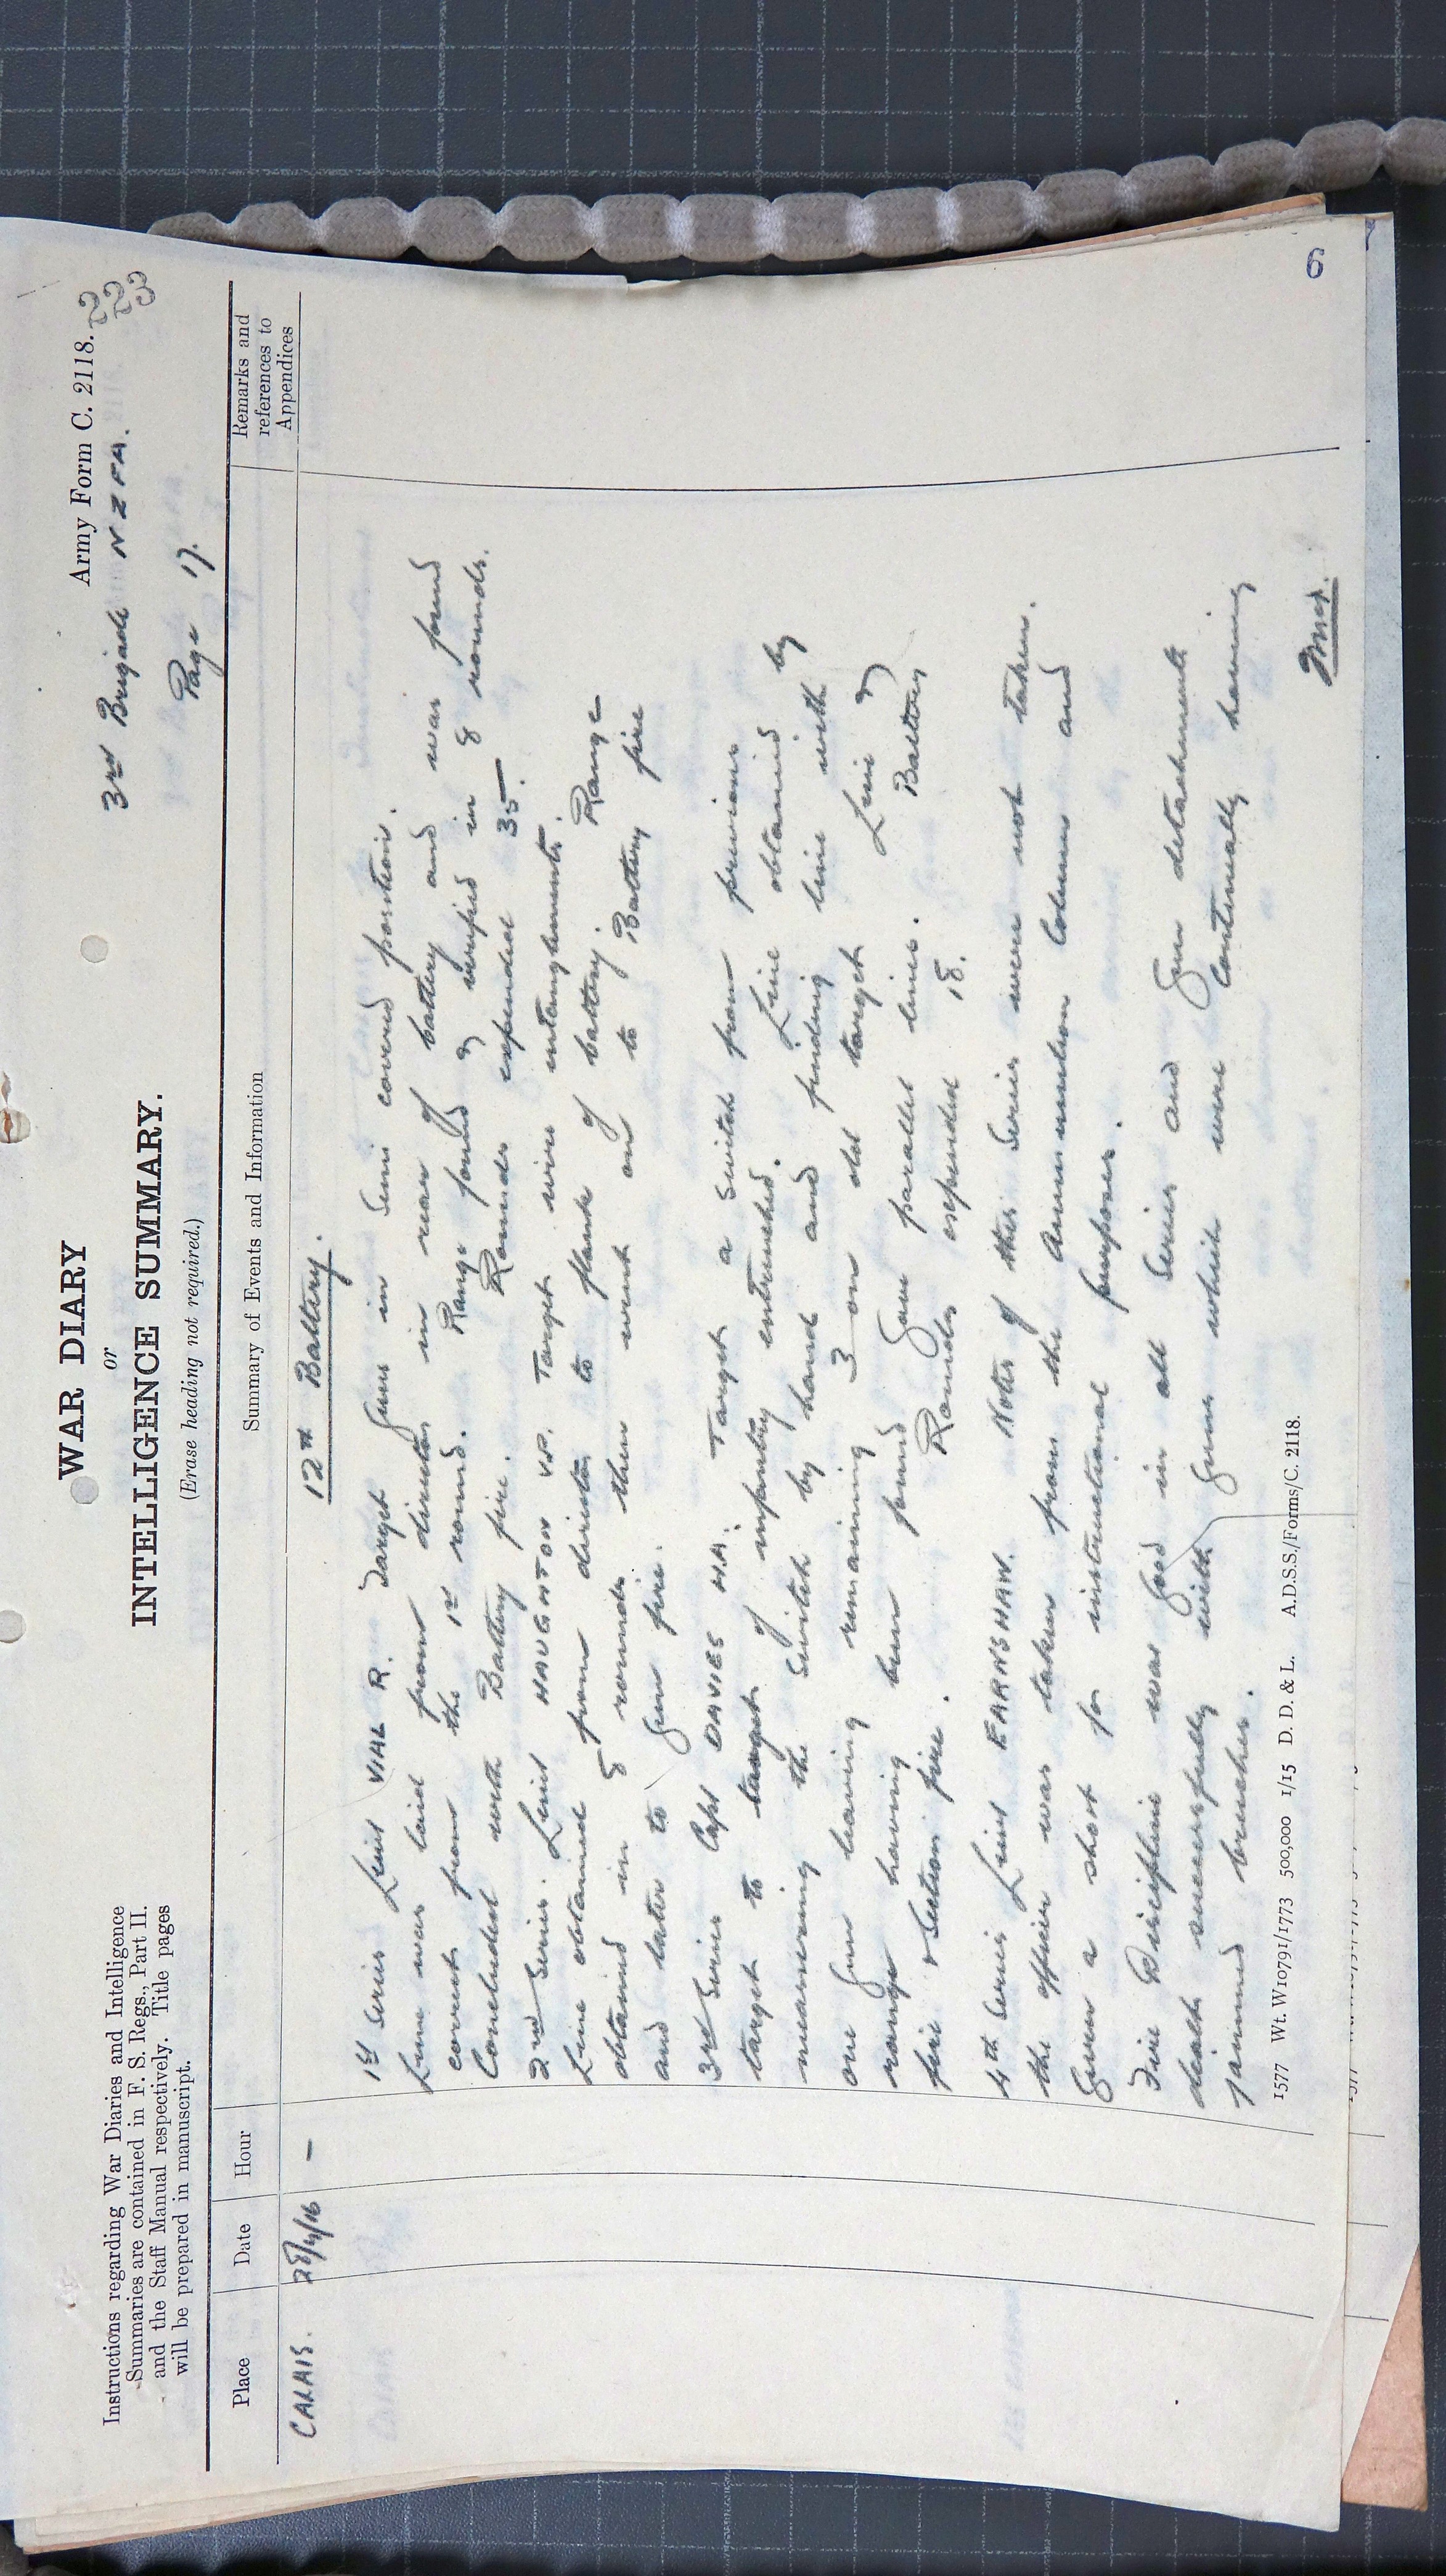 Army Form C. 2118.
WAR DIARY
or
INTELLIGENCE SUMMARY.
(Erase heading not required.)
Instructions regarding War Diaries and Intelligence
Summaries are contained in F. S. Regs., Part II.
and the Staff Manual respectively. Title pages
will be prepared in manuscript.
3rd Brigade NZFA.
223
Page 17.
Place Date Hour Summary of Events and Information Remarks and references to Appendices
CALAIS. 28/4/16 - 12th Battery.
1st Series Lieut VIAL R. Target Guns in Semi covered position.
Line was laid from director in rear of battery and was found
correct from the 1st round. Range found & verified in 8 rounds.
Concluded with Battery fire. Rounds expended 35.
2nd Series. Lieut HAUGHTON V.P. Target wire entanglements.
Line obtained from director to flank of battery. Range
obtained in 5 rounds then went on to Battery fire
and later to Gun fire.
3rd Series Capt DAVIES H.H. Target a switch from previous
target to target of infantry entrenched. Line obtained by
measuring the switch by hand and finding line with
one gun leaving remaining 3 on old target Line &
range having been found Gave parallel lines. Battery
fire & Section fire. Rounds expended 18.
4th Series Lieut EARNSHAW. Notes of this Series were not taken.
the officer was taken from the Ammunition Column and
Given a shoot for instructional purposes.
Fire Discipline was good in all Series and Gun detachments
dealt successfully with guns which were continually having
jammed breeches.
1577 Wt. W10791/1773 500,000 1/15 D. D. & L. A.D.S.S./Forms/C. 2118.
6